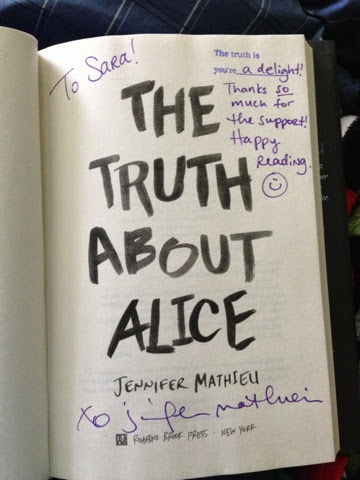 To Sara!
The truth is
you're a delight!
Thanks so
much for
the support!
Happy
Reading.
THE
TRUTH
ABOUT
ALICE
JENNIFER MATHIEU
xo jennifer mathieu
ROARING BROOK PRESS - NEW YORK